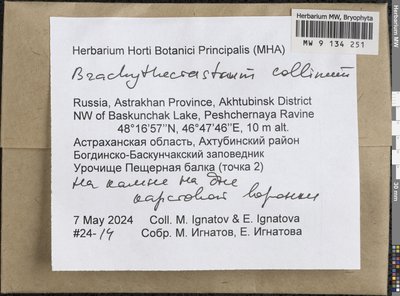 Herbarium MW, Bryophyta
MW 9 134 251
Herbarium Horti Botanici Principalis (MHA)
Brachytheciastrum collinum
Russia, Astrakhan Province, Akhtubinsk District
NW of Baskunchak Lake, Peshchernaya Ravine
48°16'57"N, 46°47'46"E, 10 m alt.
Астраханская область, Ахтубинский район
Богдинско-Баскунчакский заповедник
Урочище Пещерная балка (точка 2)
на камне на дне
карстовой воронки
7 May 2024 Coll. M. Ignatov & E. Ignatova
#24-14 Собр. М. Игнатов, Е. Игнатова